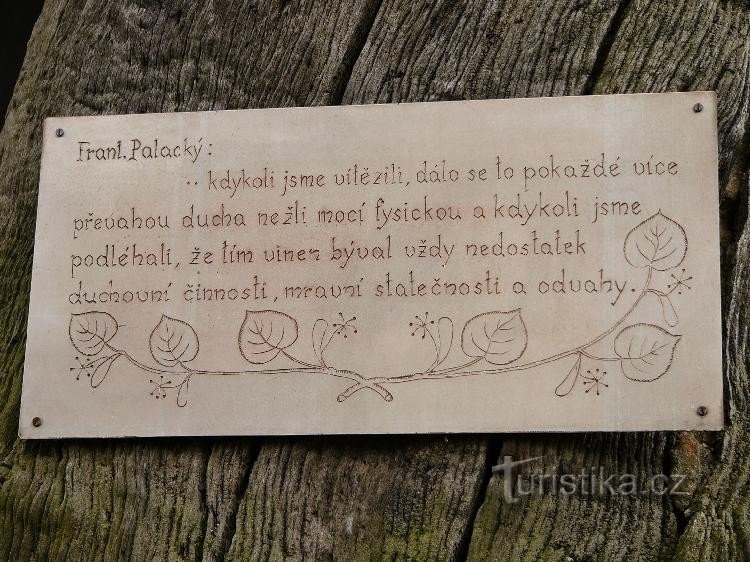 Frant. Palacký:
·· kdykoli jsme vítězili, dálo se to pokaždé více
převahou ducha nežli mocí fysickou a kdykoli jsme
podléhali, že tím vinen býval vždy nedostatek
duchovní činnosti, mravní statečnosti a odvahy.
Turistika.cz